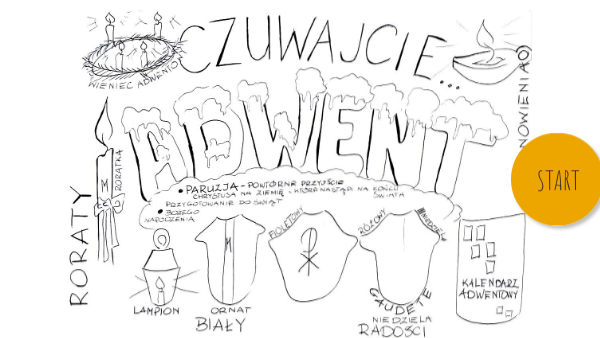 CZUWAJCIE...
WIENIEC ADWENTOWY
ADWENT
• PARUZJA - POWTÓRNE PRZYJŚCIE
CHRYSTUSA NA ZIEMIĘ - KTÓRE NASTĄPI NA KOŃCU
ŚWIATA
PRZYGOTOWANIE DO ŚWIĄT
• BOŻEGO
NARODZENIA
RORATY
RORATKA
M
LAMPION
M
ORNAT
BIAŁY
FIOLETOWY
RÓŻOWY
III NIEDZIELA
GAUDETE
NIEDZIELA
RADOŚCI
KALENDARZ
ADWENTOWY
START